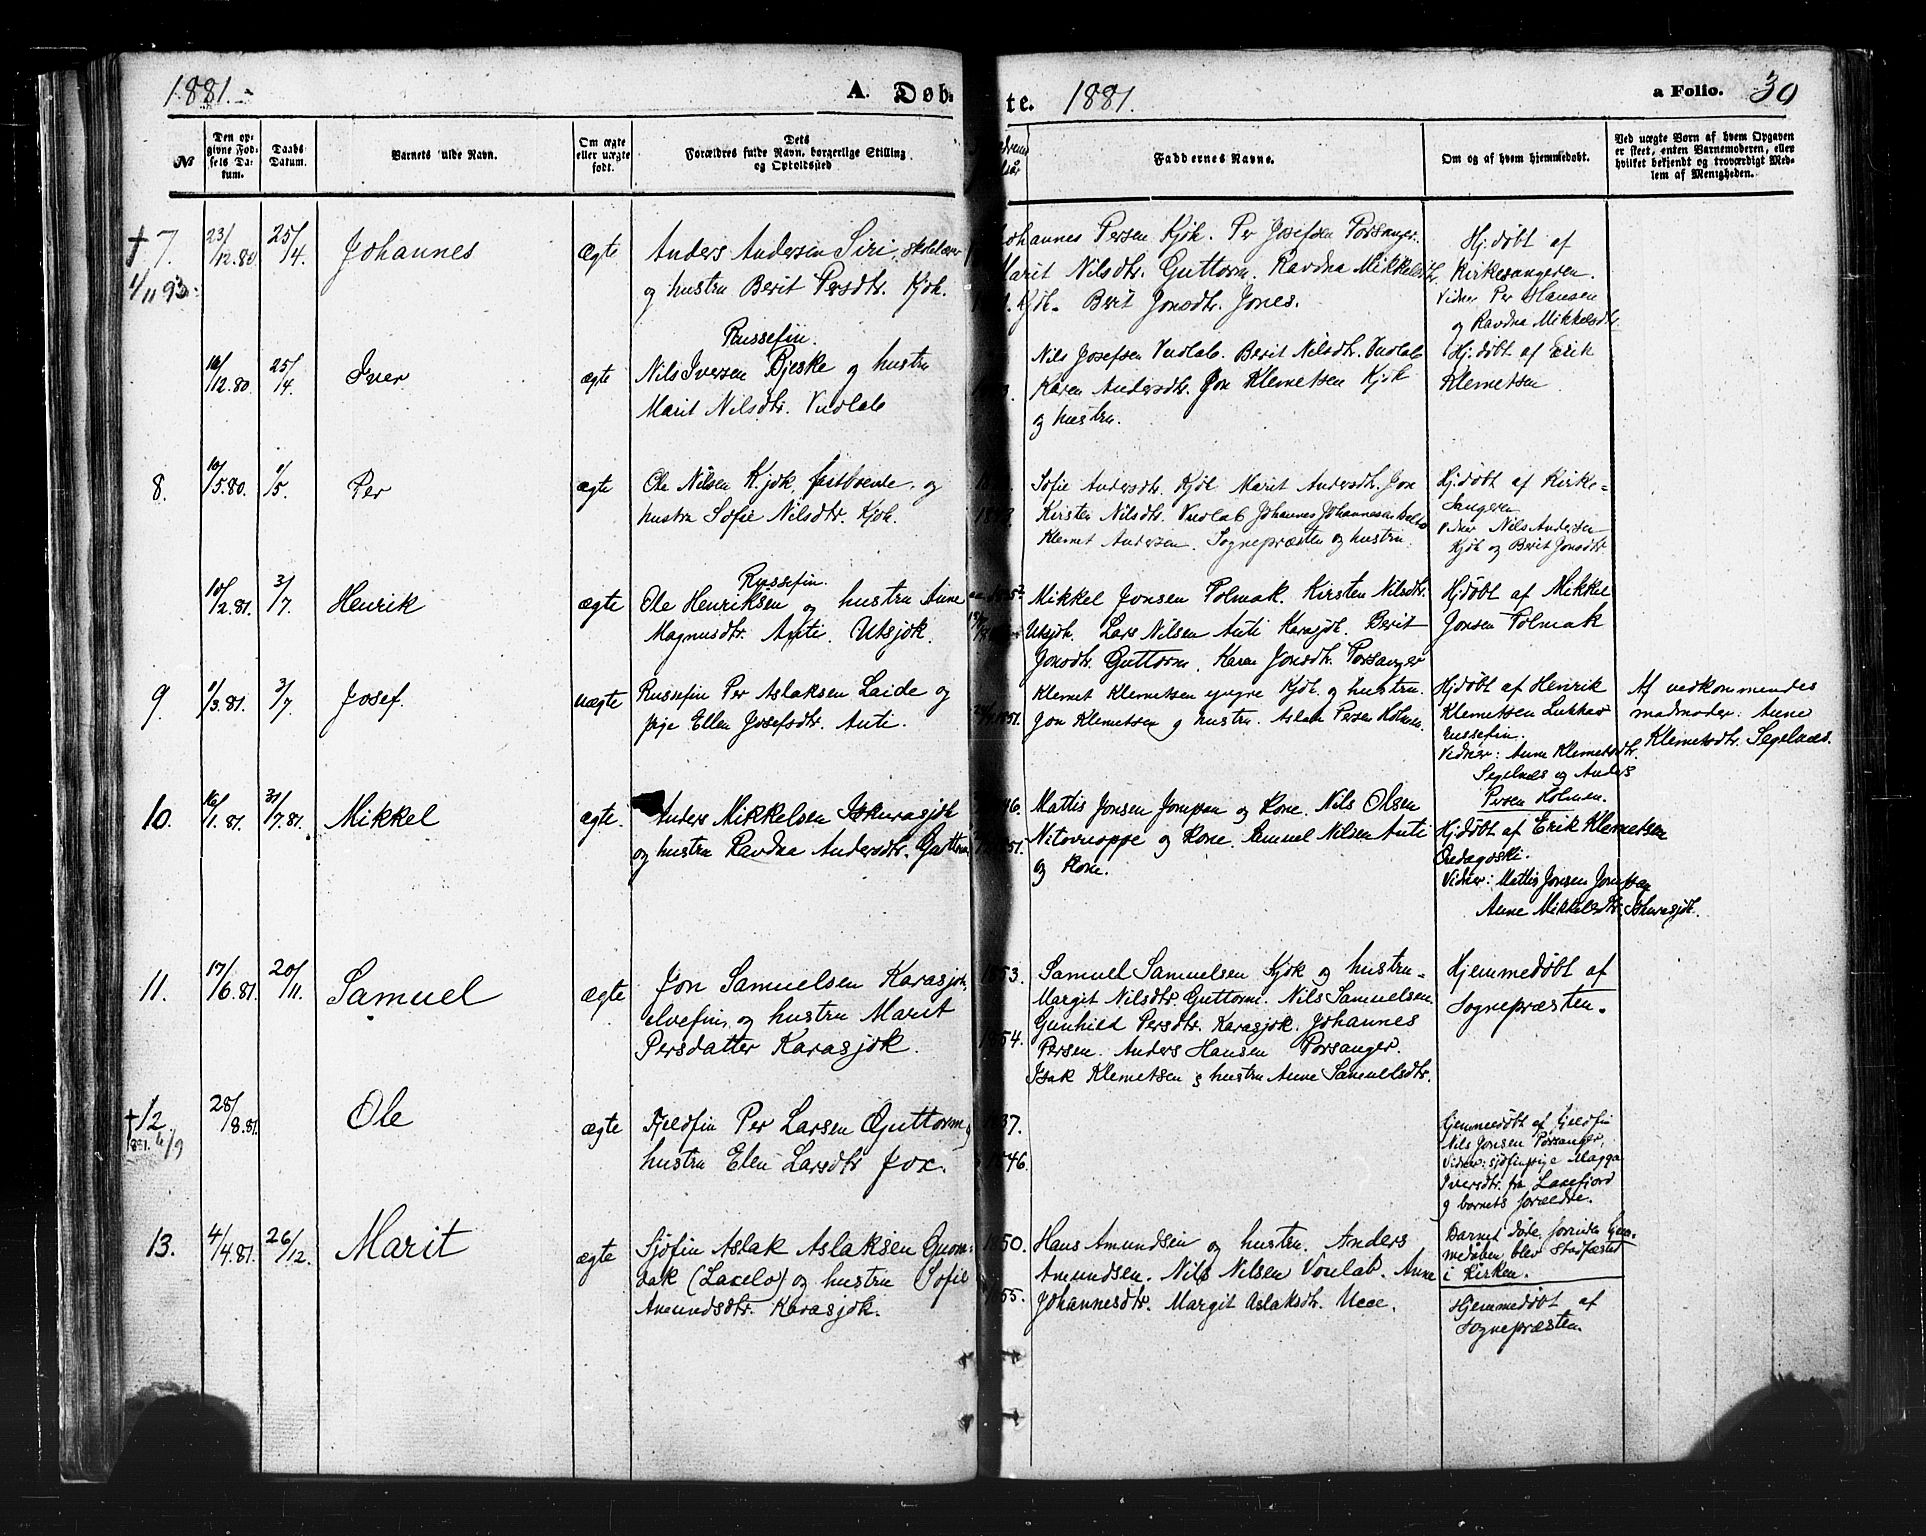 1881.
A. Døb-
te. 1881.
a Folio. 30
No
Den op-
givne Fød-
sels Da-
tum.
Daabs
Datum.
Barnets fulde Navn.
Om ægte
eller uægte
født.
Dets
Forældres fulde Navn, borgerlige Stilling
og Opholdssted
Faddernes Navne.
Om og af hvem hjemmedøbt.
Ved uægte Børn af hvem Opgaven
er skeet, enten Barnemoderen, eller
hvilket bekjendt og troværdigt Med-
lem af Menigheden.
† 7.
4/11 93.
23/12.80
25/4.
Johannes
Ægte
Anders Andersen Siri, skolelærer
og hustru Berit Persdtr. Kjøk.
Johannes Persen Kjøk. Per Josefsen Porsanger.
Marit Nilsdtr. Guttorm. Ravdna Mikkelsdtr.
Kjøk. Berit Jonsdtr. Jones.
Hj.døbt af
Kirkesangeren.
Vidner Per Hansen
og Ravdna Mikkelsdtr.
16/12.80
25/4
Iver
ægte
Russefin.
Nils Iversen Bjeske og hustru
Marit Nilsdtr. Vuolab
Nils Josefsen Vuolab. Berit Nilsdtr. Vuolab
Karen Andersdtr. Jon Klemetsen Kjøk
og hustru.
Hj.døbt af Erik
Klemetsen
8.
10/5.80.
/5.
Per
ægte
Ole Nilsen Kjøk, fastboende, og
hustru Sofie Nilsdtr. Kjøk.
Sofie Andersdtr. Kjøk Marit Andersdtr. Jon
Kirsten Nilsdtr. Vuolab Johannes Johannesen
Klemet Andersen. Sognepræsten og hustru.
Hj.døbt af Kirke-
sangeren
Vidner Nils Andersen
Kjøk og Berit Jonsdtr.
10/2.81.
3/7.
Henrik
ægte
Russefin.
Ole Henriksen og hustru Anne
Magnusdtr. Anti. Utsjok.
Mikkel Jonsen Polmak. Kirsten Nilsdtr.
Utsjok. Lars Nilsen Anti Karasjok. Berit
Jonsdtr. Guttorm. Karen Jonsdtr. Porsanger
Hj.døbt af Mikkel
Jonsen Polmak
9.
/3.81.
3/7.
Josef.
uægte
Russefin Per Aslaksen Laide og
pige Ellen Josefsdtr. Anti.
1851.
Klemet Klemetsen yngre Kjøk. og hustru.
Jon Klemetsen og hustru. Aslak Persen Holmen.
Hj.døbt af Henrik
Klemetsen Lukkar
russefin.
Vidner: Anne Klemetsdtr.
Segelnes og Anders
Persen Holmen.
Af vedkommendes
madmoder: Anne
Klemetsdtr. Segelnes.
10.
16/1.81.
31/7.81.
Mikkel
ægte.
Anders Mikkelsen Iskurasjok
og hustru Ravdna Andersdtr. Guttorm
46.
51.
Mattis Jonsen Jompan og kone. Nils Olsen
Nitovuoppe og kone. Samuel Nilsen Anti
og kone.
Hj.døbt af Erik Klemetsen
Vidner: Mattis Jonsen Jompan
Anne Mikkelsdtr. Iskurasjok.
11.
17/6.81.
20/11.
Samuel
ægte
Jon Samuelsen Karasjok,
elvefin, og hustru Marit
Persdatter Karasjok.
53.
54.
Samuel Samuelsen Kjøk og hustru-
Margit Nilsdtr. Guttorm. Nils Samuelsen.
Gunhild Persdtr. Karasjok. Johannes
Persen. Anders Hansen Porsanger.
Isak Klemetsen & hustru Anne Samuelsdtr.
Hjemmedøbt af
Sognepræsten.
† 12.
1881. 4/9
28/8.81.
Ole
ægte
Fjeldfin Per Larsen Guttorm og
hustru Elen Larsdtr Jox.
37.
46.
Hjemmedøbt af fjeldfin
Nils Jonsen Porsanger,
Vidner: sjøfinpige Magga
Iversdtr. fra Laxefjord
og barnets forældre.
Barnet døde, forinden hjem-
medøben blev stadfæstet
i Kirken.
13.
4/4.81.
26/12.
Marit
ægte
Sjøfin Aslak Aslaksen Guom-
sak (Laxelv) og hustru Sofie
Amundsdtr. Karasjok.
50.
55.
Hans Amundsen og hustru. Anders
Amundsen. Nils Nilsen Voulab. Anne
Johannesdtr. Margit Aslaksdtr. Ucce.
Hjemmedøbt af
Sognepræsten.